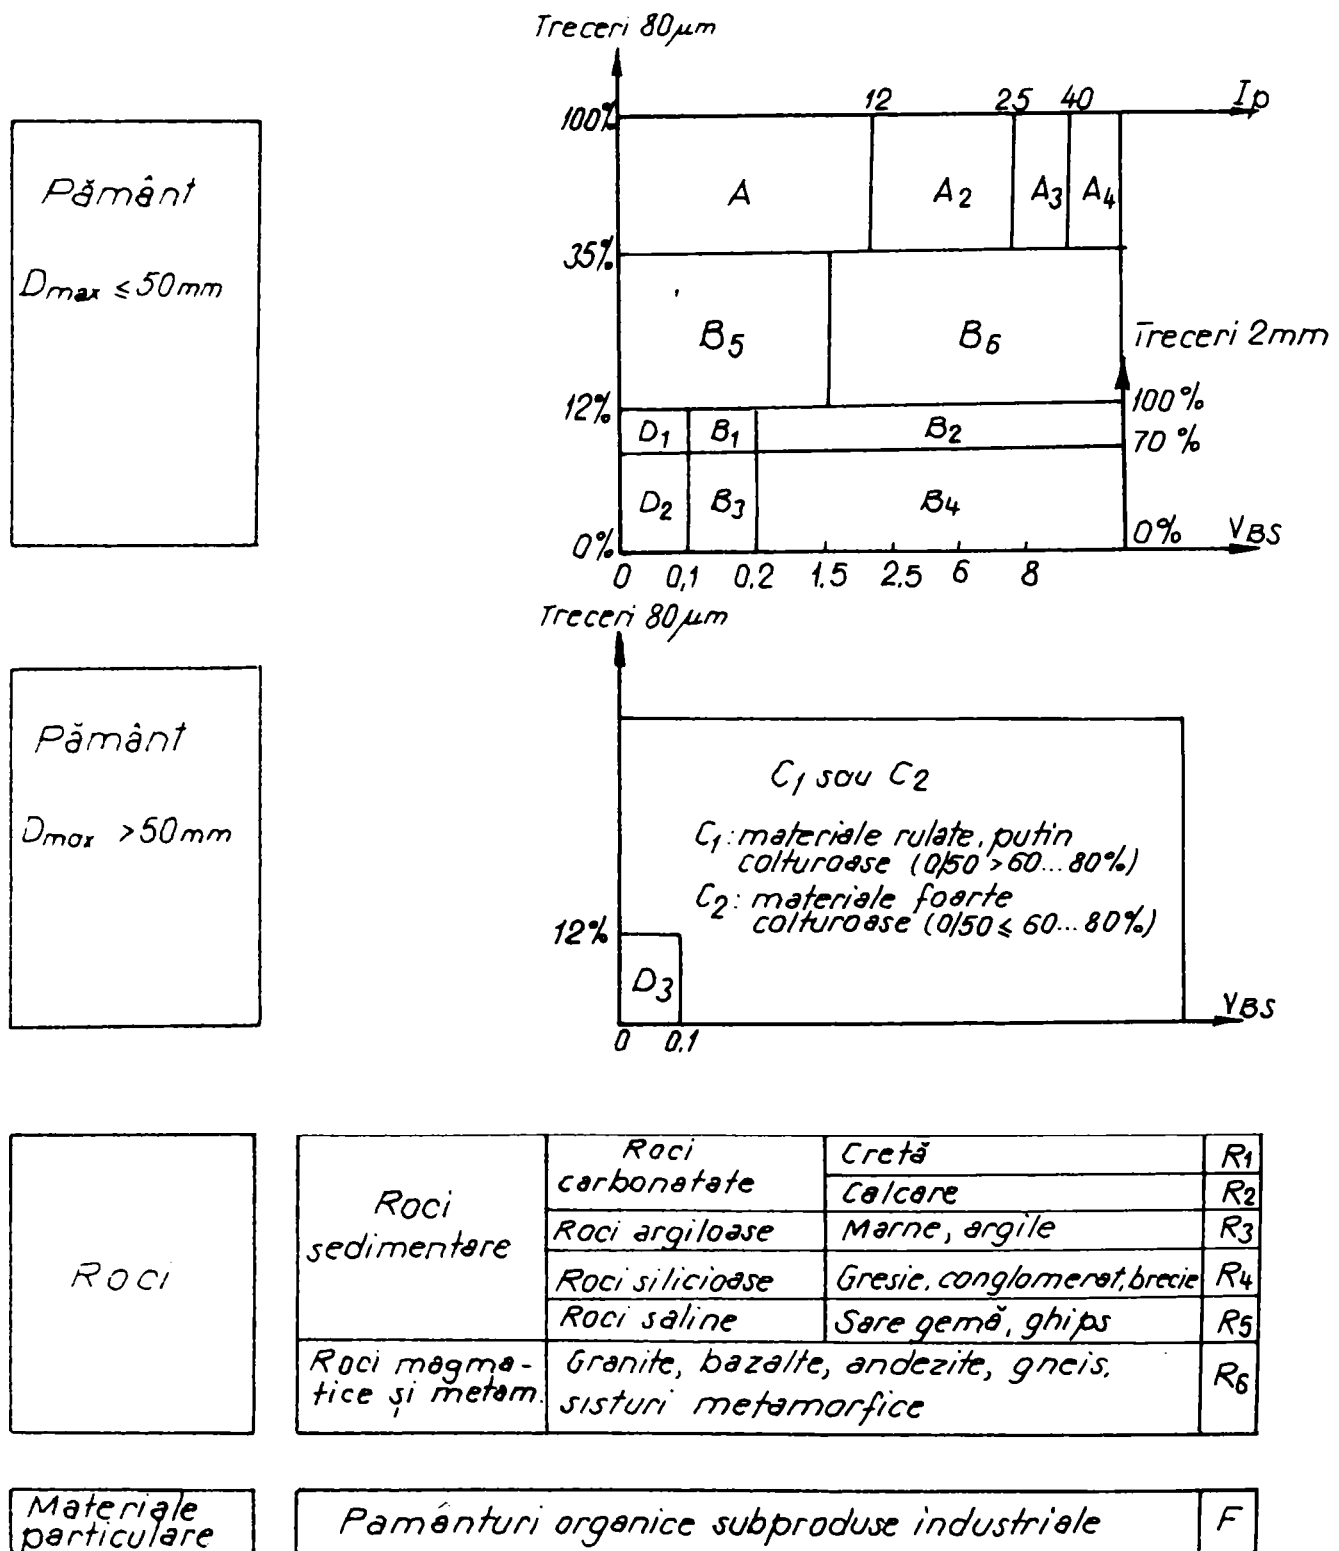 Treceri 80μm
12 25 40 Ip
100%
Pământ
Dmax ≤ 50mm
A A2 A3 A4
35%
B5 B6
Treceri 2mm
12%
100%
D1 B1 B2
70%
D2 B3 B4
0%
0% VBS
0 0,1 0.2 1.5 2.5 6 8
Treceri 80μm
Pământ
Dmax >50mm
C1 sau C2
C1: materiale rulate, putin
colturoase (0/50 >60...80%)
C2: materiale foarte
colturoase (0/50 ≤ 60...80%)
12%
D3
VBS
0 0.1
Roci
Roci
sedimentare
Roci
carbonatate
Cretă R1
Calcare R2
Roci argiloase Marne, argile R3
Roci silicioase Gresie, conglomerat, brecie R4
Roci saline Sare gemă, ghips R5
Roci magma-
tice și metam.
Granite, bazalte, andezite, gneis,
sisturi metamorfice
R6
Materiale
particulare
Pamânturi organice subproduse industriale F